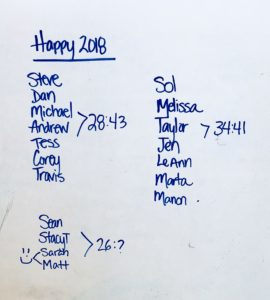 Happy 2018
Steve
Dan
Michael
Andrew >28:43
Tess
Corey
Travis
Sol
Melissa
Taylor >34:41
Jen
LeAnn
Marta
Manon
Sean
StacyT >26:?
Sarah
Matt